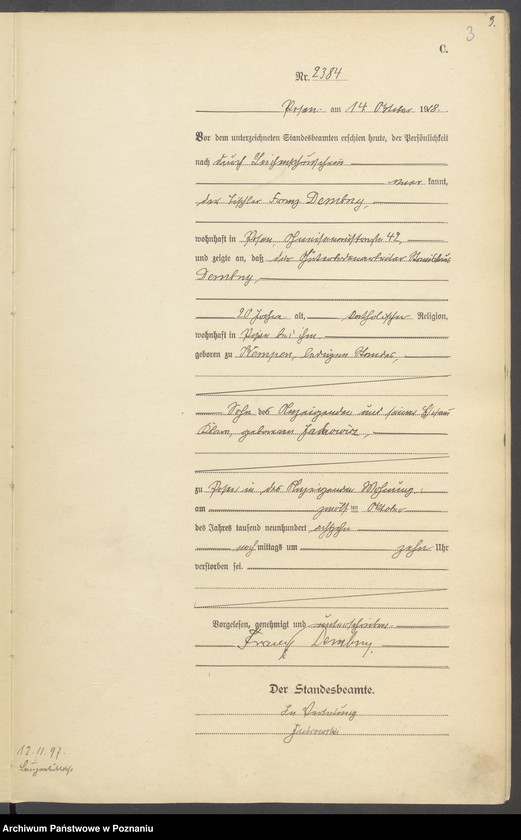 3
3.
C.
Nr. 2384
Posen am 14 Oktober 1918.
Vor dem unterzeichneten Standesbeamten erschien heute, der Persönlichkeit
nach durch
kannt,
der Tischler Franz Dembny,
wohnhaft in Posen, 42,
und zeigte an, daß der Güterbodenarbeiter Stanislaus
Dembny,
20 Jahre alt, katholischer Religion,
wohnhaft in Posen bei ihm,
geboren zu Kempen, ledigen Standes,
Sohn des Anzeigenden und seiner Ehefrau
Klara, geborenen
zu Posen in des Anzeigenden Wohnung
am zwölften Oktober
des Jahres tausend neunhundert achtzehn
nachmittags um zehn Uhr
verstorben sei.
Vorgelesen, genehmigt und unterschrieben
Franz Dembny.
Der Standesbeamte.
In Vertretung
12.11.97.
Archiwum Państwowe w Poznaniu